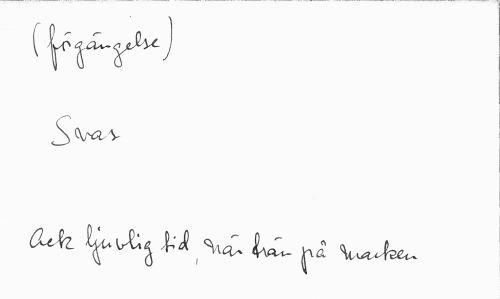 (förgängelse)
Svas
Ack ljuvlig tid, när trän på marken